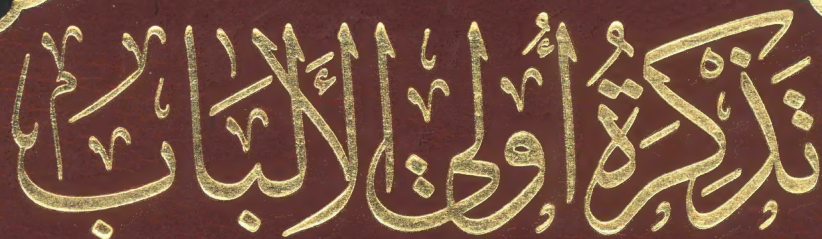 تَذْكِرَةُ أُولِي الأَلْبَابِ